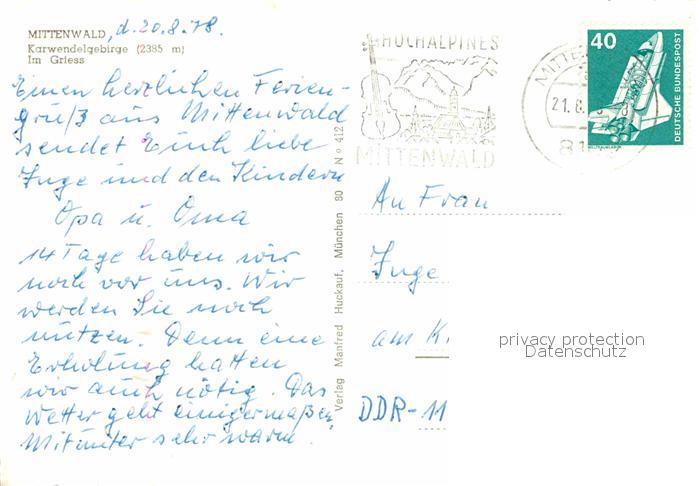 MITTENWALD, d. 20.8.78.
Karwendelgebirge (2385 m)
Im Griess
Einen herzlichen Ferien-
gruß aus Mittenwald
sendet Euch liebe
Inge und den Kindern
Opa u. Oma
14 Tage haben wir
noch vor uns. Wir
werden Sie noch
nützen. Denn eine
Erholung hatten
wir auch nötig. Das
Wetter geht einigermaßen,
Mitunter sehr warm.
Verlag Manfred Huckauf, München 80 N° 412
HOCHALPINES
MITTENWALD
MITTE
21.8.
81
40
DEUTSCHE BUNDESPOST
An Frau
Inge
am K.
DDR-11
privacy protection
Datenschutz